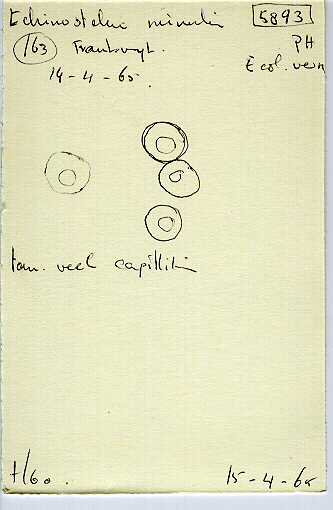 Echinostelium minutum 5893
163 Frankrijk. PH
14-4-65. Ecol. vern
tam. veel capillitium
H60.
15-4-65